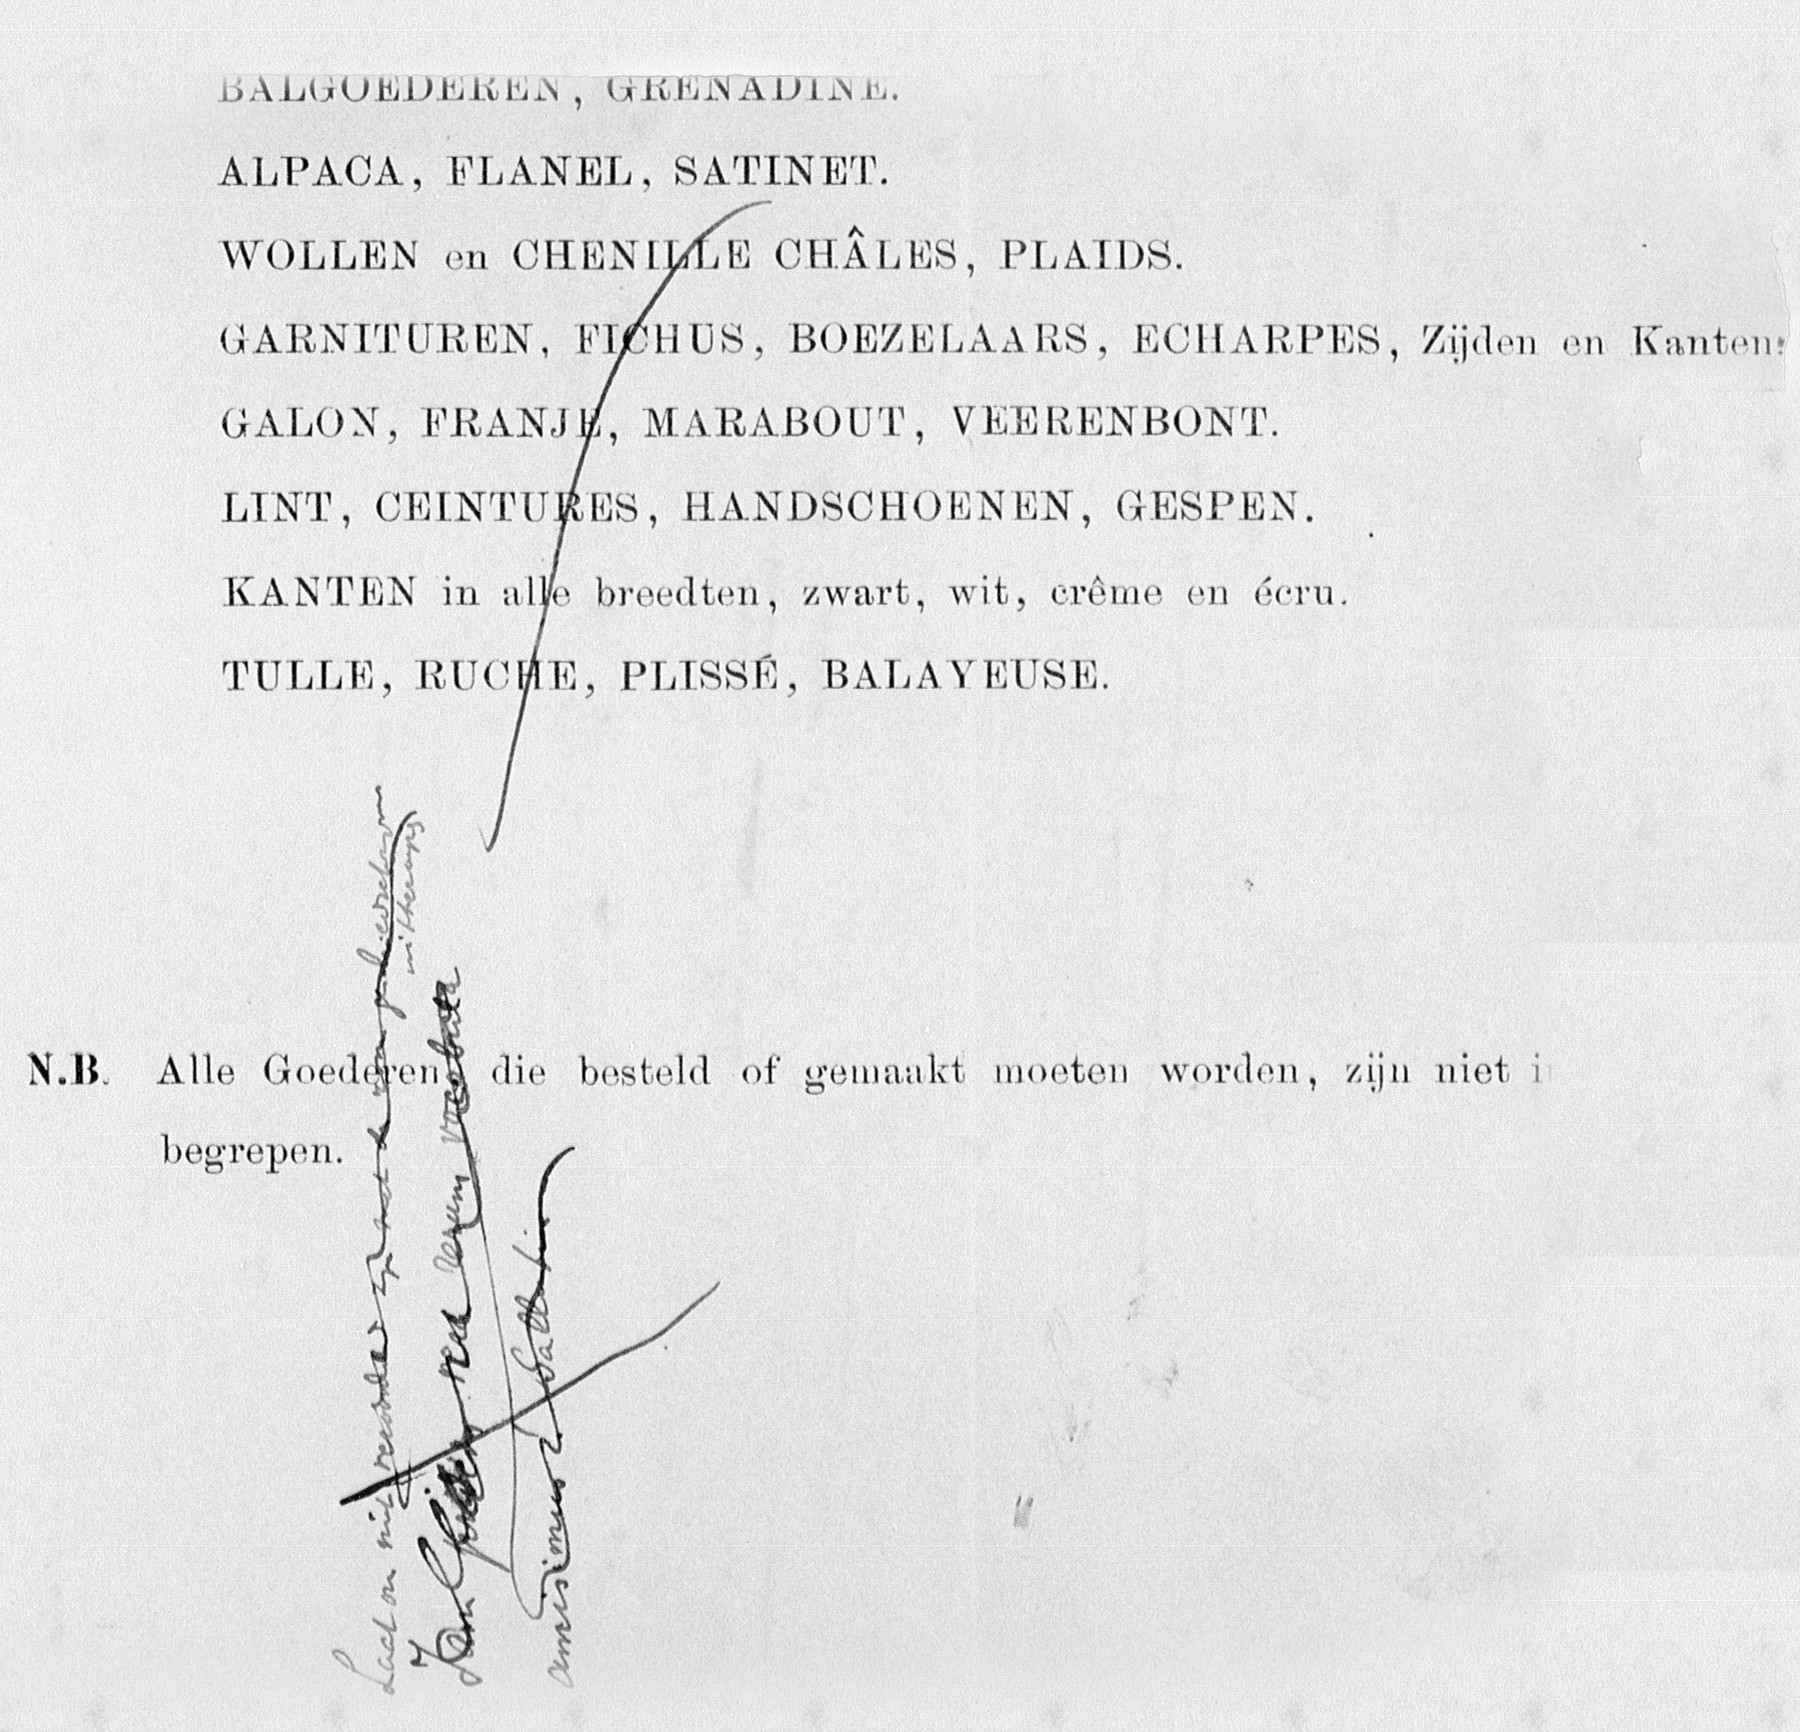 BALGOEDEREN, GRENADINE.
ALPACA, FLANEL, SATINET.
WOLLEN en CHENILLE CHÂLES, PLAIDS.
GARNITUREN, FICHUS, BOEZELAARS, ECHARPES, Zijden en Kanten.
GALON, FRANJE, MARABOUT, VEERENBONT.
LINT, CEINTURES, HANDSCHOENEN, GESPEN.
KANTEN in alle breedten, zwart, wit, crême en écru.
TULLE, RUCHE, PLISSÉ, BALAYEUSE.
N.B. Alle Goederen, die besteld of gemaakt moeten worden, zijn niet
begrepen.
Laat on niet
rerum vocabula
amisimus